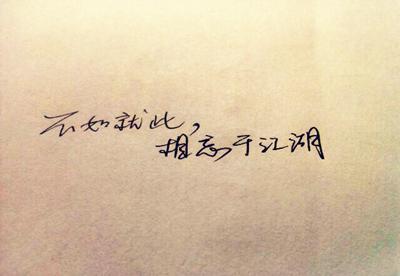 不如就此，
相忘于江湖